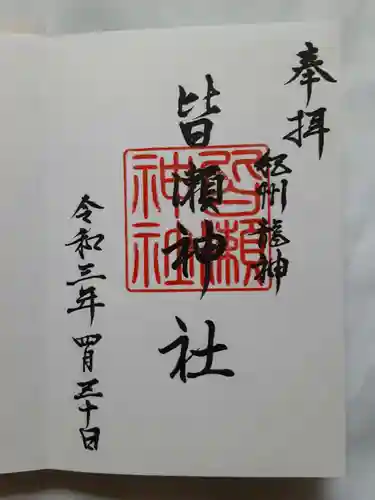 奉拝
紀州龍神
皆瀬神社
皆瀬
神社
令和三年四月三十日